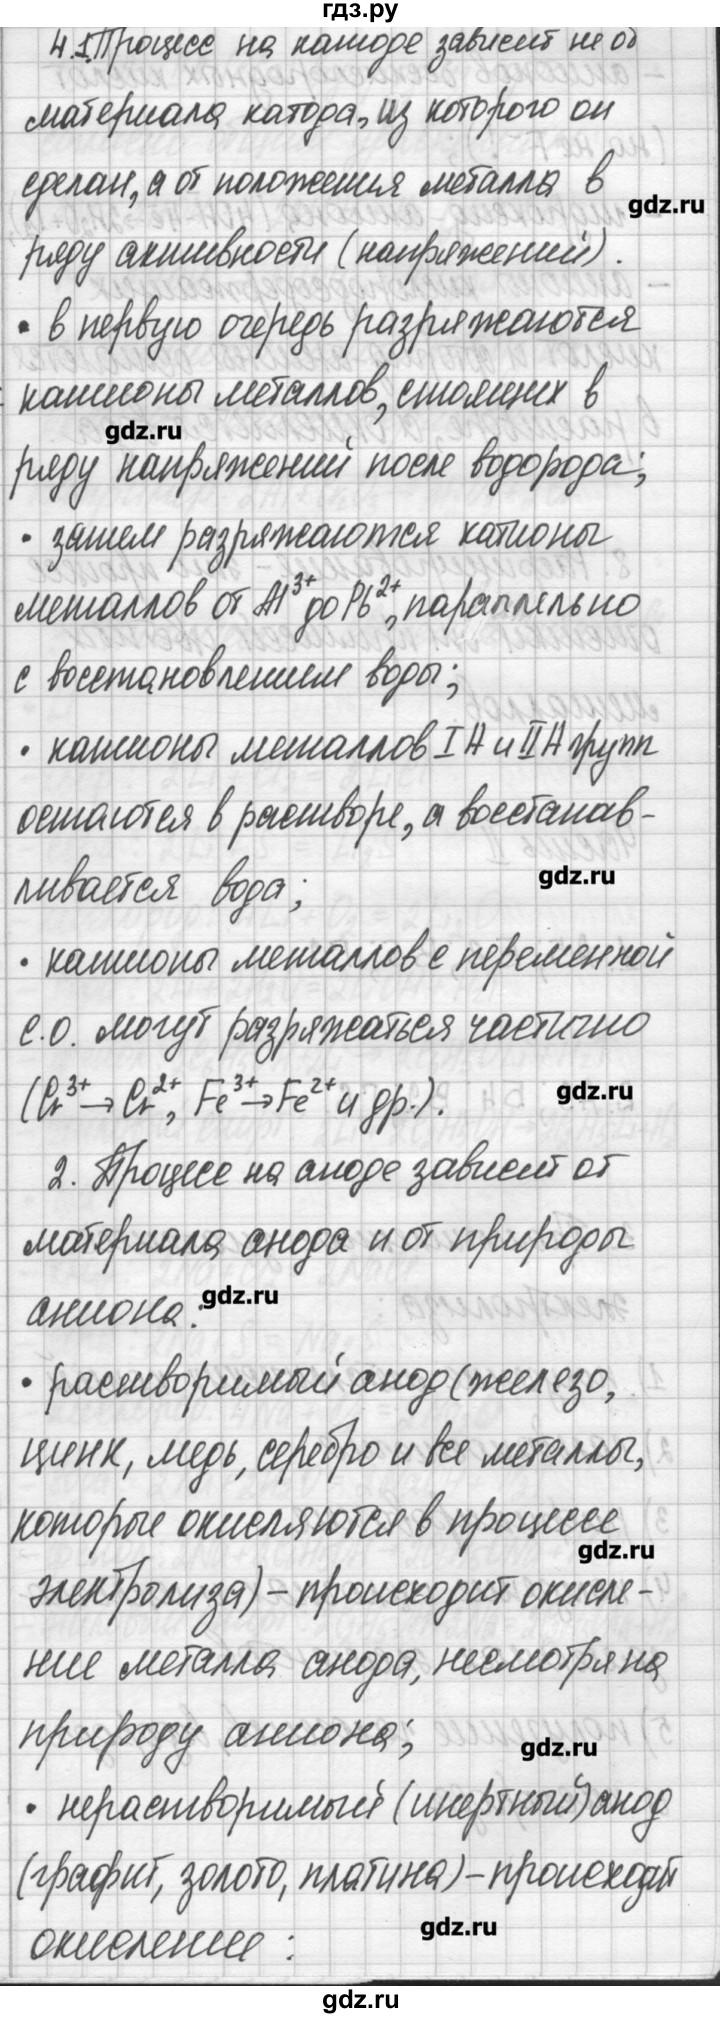 гдз.ру
4.1.Процесс на катоде зависит не от
материала катода, из которого он
сделан, а от положения металла в
gdz.ru
ряду активности (напряжений).
• в первую очередь разряжаются
катионы металлов, стоящих в
gdz.ru
ряду напряжений после водорода;
• затем разряжаются катионы
металлов от Al³⁺ до Pb²⁺, параллельно
с восстановлением воды;
• катионы металлов IA и IIA групп
остаются в растворе, а восстанав-
gdz.ru
ливается вода;
• катионы металлов с переменной
с.о. могут разряжаться частично
gdz.ru
(Cr³⁺→Cr²⁺, Fe³⁺→Fe²⁺ и др.).
2. Процесс на аноде зависит от
материала анода и от природы
gdz.ru
аниона:
• растворимый анод (железо,
цинк, медь, серебро и все металлы,
которые окисляются в процессе
gdz.ru
электролиза) – происходит окисле-
ние металла анода, несмотря на
природу аниона;
gdz.ru
• нерастворимый (инертный) анод
(графит, золото, платина) – происходит
gdz.ru
окисление:
gdz.ru